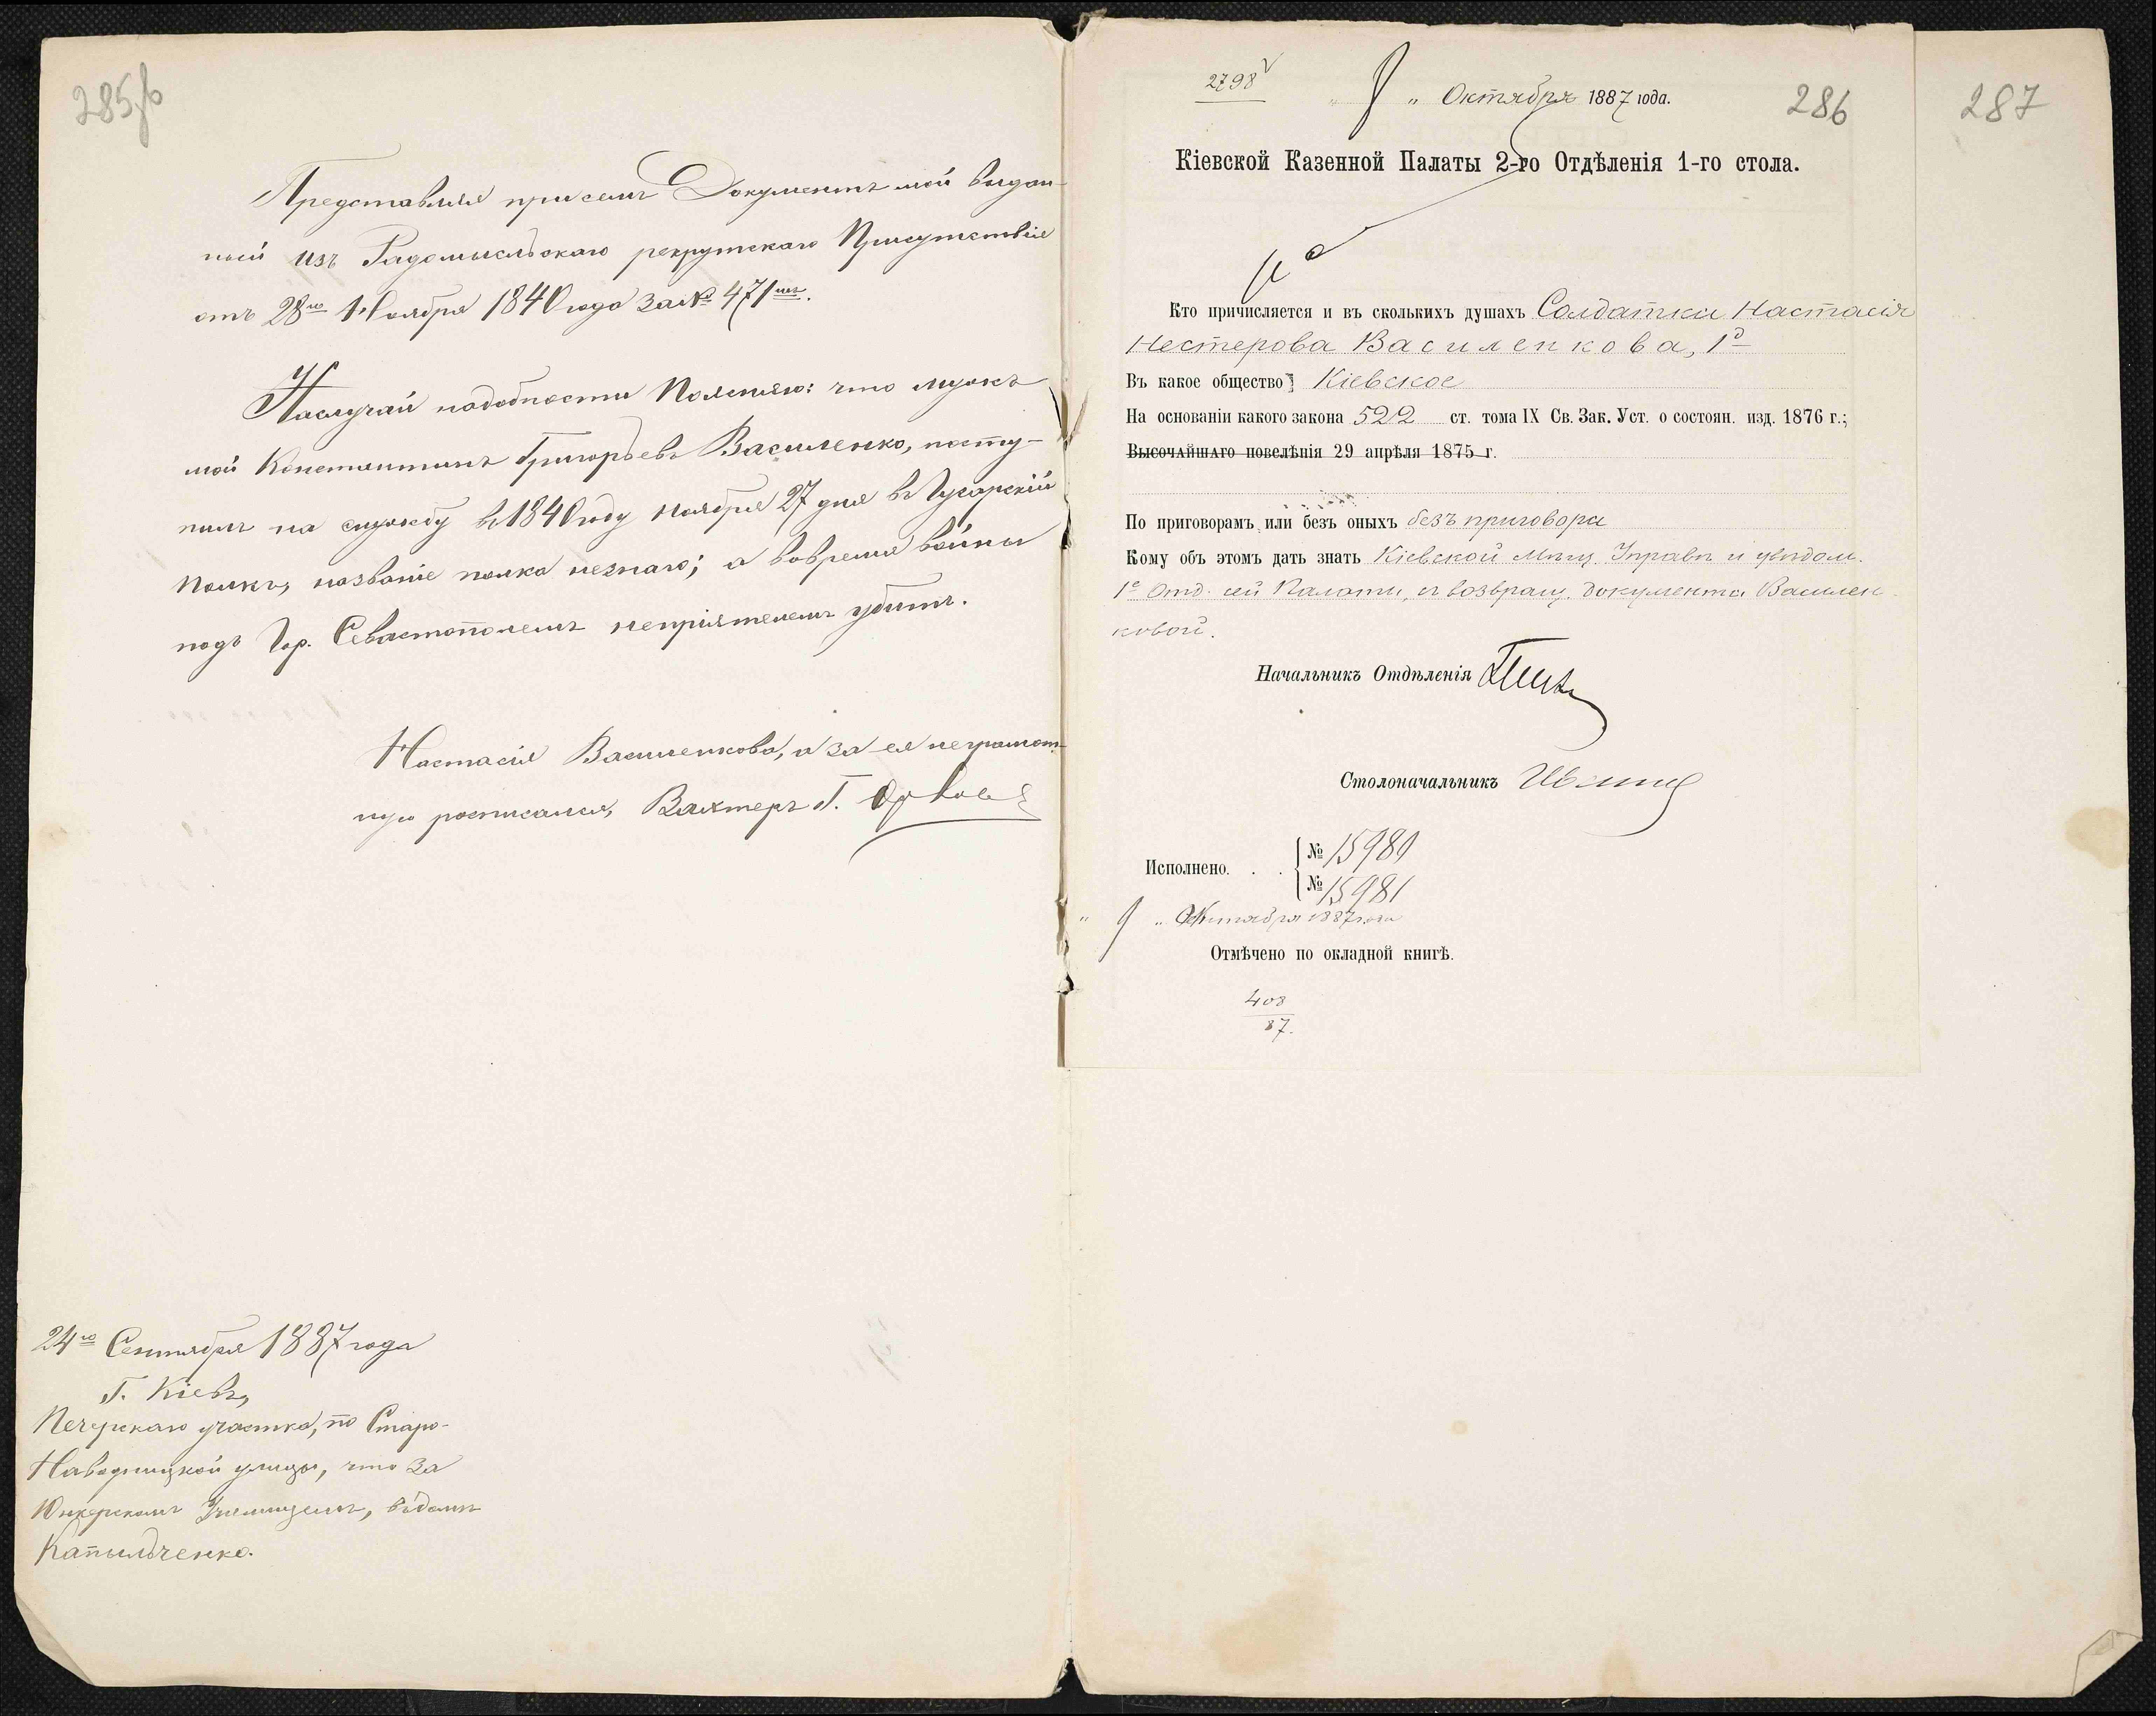 285об
Представляя при семъ Документъ мой выдан-
ный изъ Радомысльскаго рекрутскаго Присутствія
отъ 28го Ноября 1840 года за № 471мъ.
На случай надобности Поясняю: что мужъ
мой Константинъ Григорьевъ Василенко, посту-
пилъ на службу въ 1840 году ноября 27 дня въ Гусарскій
Полкъ, названіе полка незнаю; а вовремя войны
подъ Гор. Севастополемъ непріятелемъ убитъ.
Настасія Василенкова, а за ея неграмот-
ную росписался, Вахтеръ Г.
24го Сентября 1887 года
Г. Кіевъ,
Печерскаго участка, по Старо-
Наводницкой улицы, что за
Юнкерскимъ Училищемъ, въ домъ
Капыльченко.
2798
" " Октября 1887 года.
286
287
Кіевской Казенной Палаты 2-го Отдѣленія 1-го стола.
Кто причисляется и въ сколькихъ душахъ Солдатка Настасія
Нестерова Василенкова, 1д
Въ какое общество Кіевское
На основаніи какого закона 522 ст. тома IX Св. Зак. Уст. о состоян. изд. 1876 г.;
Высочайшаго повелѣнія 29 апрѣля 1875 г.
По приговорамъ или безъ оныхъ безъ приговора
Кому объ этомъ дать знать Кіевской Мѣщ. Управѣ и увѣдом.
1е Отд. сей Палаты, съ возвращ. документа Василен
ковой.
Начальникъ Отдѣленія
Столоначальникъ
Исполнено. . . № 15980
№ 15981
" 9 " Октября 1887 года
Отмѣчено по окладной книгѣ.
408
87.